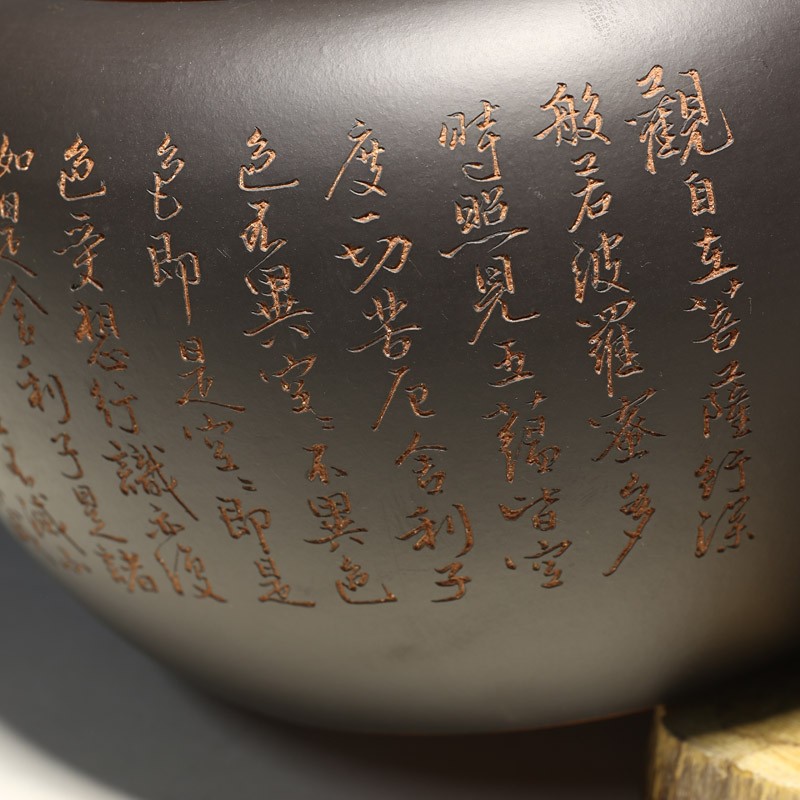 觀自在菩薩行深
般若波羅蜜多
時照見五蘊皆空
度一切苦厄舍利子
色不異空空不異色
色即是空空即是
色受想行識亦復
如是舍利子是諸